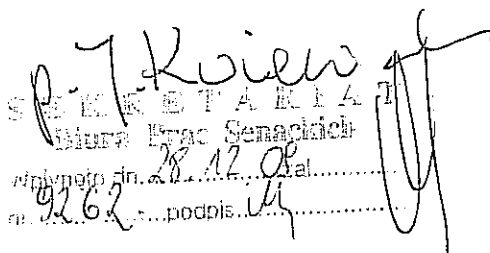 p. J.
SEKRETARIAT
Biura Prac Senackich
wpłynęło dn. 28.12.09 zał.
nr 9262 podpis